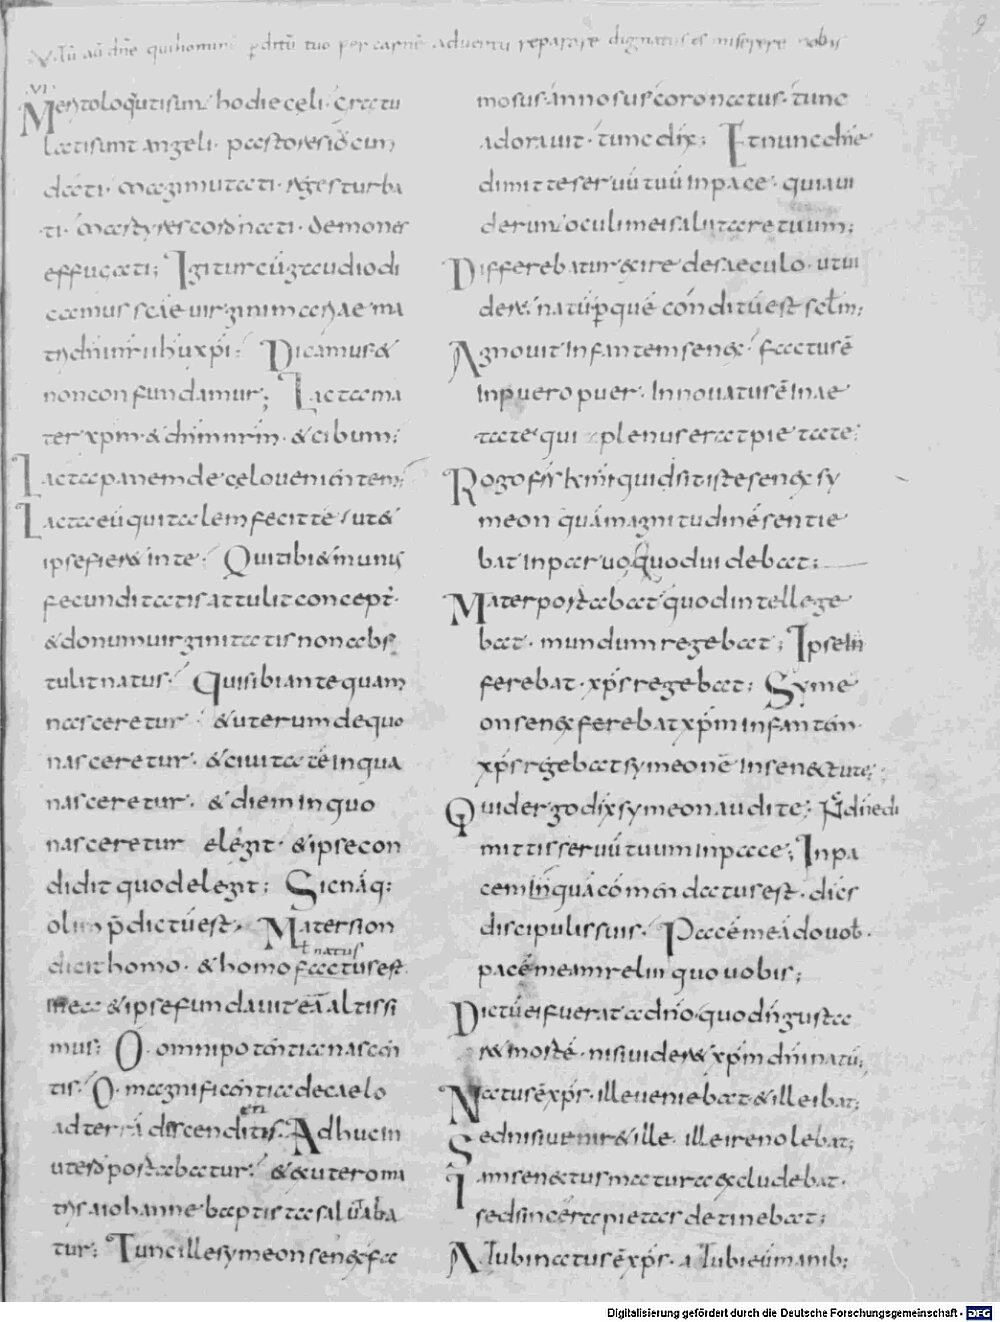 9
qui homini perditu tuo per carne adventu reparare dignatus es miserere nobis
VI
Merito loquti sunt hodie celi. Gratu
lati sunt angeli. pastores iocun
dati. magi mutati. reges turba
ti. martyres coronati. demones
effugati; Igitur cū gaudio di
camus scae virginimariae ma
tri dni nri ihu xpi. Dicamus &
non confundamur; Lacta ma
ter xpm & dnm nrm. & cibum;
Lacta panem de celo venientem;
Lacta eū qui talem fecit te, ut &
ipse fieret in te. Qui tibi & munus
fecunditatis attulit concept.
& donum virginitatis non abs
tulit natus. Qui sibi antequam
nasceretur. & uterum de quo
nasceretur. & civitatē in qua
nasceretur. & diem in quo
nasceretur elegit. & ipse con
didit quod elegit; Sicnāq;
olim p̄dictū est. Mater sion
ł natus
dicit homo. & homo factus est
in ea & ipse fundavit eā altissi
mus; O. omnipotentia nascen
tis. O. magnificentia de caelo
en
ad terrā discenditis. Adhuc in
utero postabatur. & ex utero ma
tris a iohanne baptista salutaba
tur; Tunc ille symeon senex fa
mosus. annosus coronatus. tunc
adoravit. tunc dix; Et nunc dne
dimitte servū tuū in pace. quia vi
derunt oculi mei salutare tuum;
Differebatur exire de saeculo. ut vi
deret natū p quē conditū est sclm;
Agnovit infantem senex. factus ē
in puero puer. Innovatus ē in ae
tate qui plenus erat pietate;
Rogo frs kmi quid sit iste senex sy
meon quā magnitudinē sentie
bat in parvo quod videbat;
Mater postabat quod intellege
bat. mundum regebat; Ipse in
ferebat. xps regebat; Syme
on senex ferebat xpm infantem.
xps regebat symeonē in senectute;
Quid ergo dix symeon audite; dne di
mittis servū tuum in pace; In pa
cem in quā comendatus est. dices
discipulis suis. Pacē meā do vob.
pacē meam relinquo vobis;
Dictū ei fuerat a dno. quod ñ gusta
ret mortē. nisi videret xpm dni natū;
Natus ē xps. ille veniebat & ille ibat;
Sed nisi veniret ille. ille ire nolebat;
Iam senectus matura excludebat.
sed sincera pietas detinebat;
At ubi natus ē xps. at ubi eū manib;
Digitalisierung gefördert durch die Deutsche Forschungsgemeinschaft - DFG